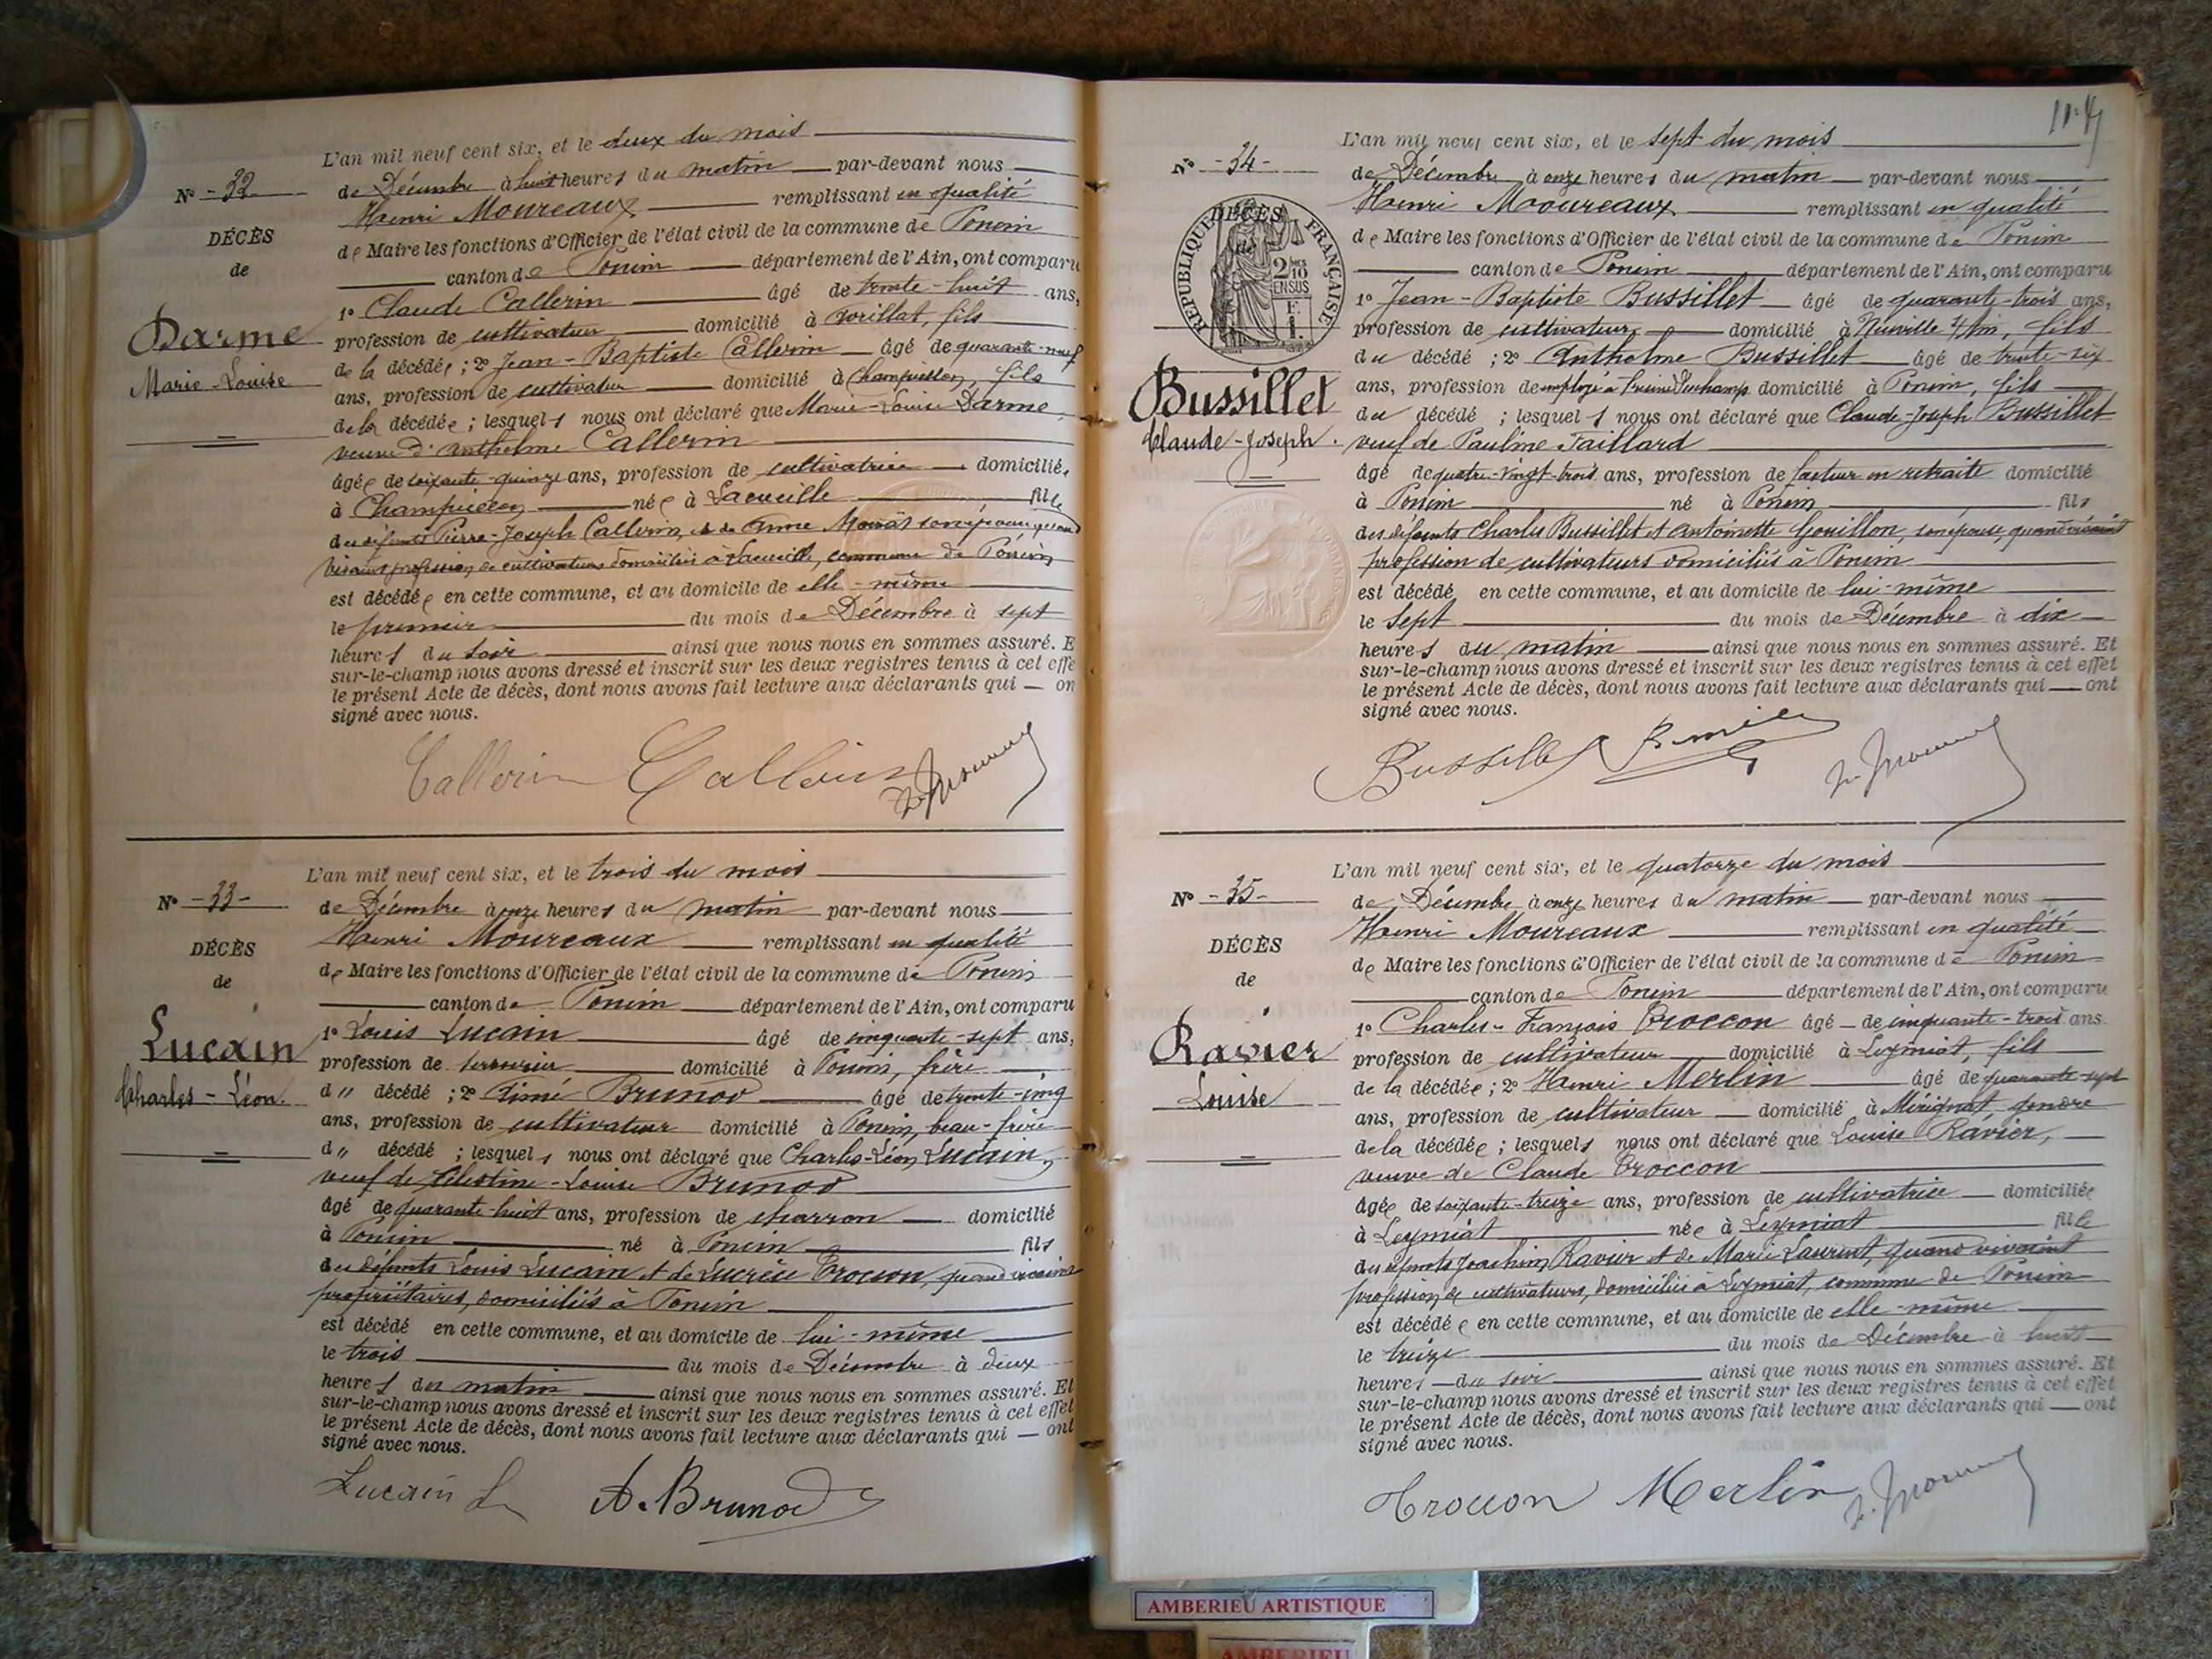 N° - 32 -
DÉCÈS
de
Darme
Marie-Louise
L'an mil neuf cent six, et le deux du mois
de Décembre à huit heures du matin par-devant nous
Henri Moureaux remplissant en qualité
de Maire les fonctions d'Officier de l'état civil de la commune de Poncin
canton de Poncin département de l'Ain, ont comparu
1° Claude Callerin âgé de trente-huit ans,
profession de cultivateur domicilié à fils
de la décédée ; 2° Jean-Baptiste Callerin âgé de quarante-neuf
ans, profession de cultivateur domicilié à fils
de la décédée ; lesquels nous ont déclaré que Marie-Louise Darme,
veuve d'Anthelme Callerin
âgée de soixante-quinze ans, profession de cultivatrice domiciliée
à née à Lacueille fille
des défunts Pierre-Joseph Callerin, et de Anne son épouse quand
vivaient profession de cultivateurs domiciliés à Lacueille, commune de Poncin
est décédée en cette commune, et au domicile de elle-même
le premier du mois de Décembre à sept
heures du soir ainsi que nous nous en sommes assuré. E
sur-le-champ nous avons dressé et inscrit sur les deux registres tenus à cet effe
le présent Acte de décès, dont nous avons fait lecture aux déclarants qui — on
signé avec nous.
Callerin Callerin
N° - 33 -
DÉCÈS
de
Lucain
Charles-Léon
L'an mil neuf cent six, et le trois du mois
de Décembre à onze heures du matin par-devant nous
Henri Moureaux remplissant en qualité
de Maire les fonctions d'Officier de l'état civil de la commune de Poncin
canton de Poncin département de l'Ain, ont comparu
1° Louis Lucain âgé de cinquante-sept ans,
profession de domicilié à Poncin, frère
d" décédé ; 2° Aimé Brunod âgé de trente-cinq
ans, profession de cultivateur domicilié à Poncin, beau-frère
d" décédé ; lesquels nous ont déclaré que Charles-Léon Lucain,
veuf de Célestine-Louise Brunod
âgé de quarante-huit ans, profession de charron domicilié
à Poncin né à Poncin fils
des défunts Louis Lucain et de Lucrèce Troccon, quand vivaient
propriétaires, domiciliés à Poncin
est décédé en cette commune, et au domicile de lui-même
le trois du mois de Décembre à deux
heures du matin ainsi que nous nous en sommes assuré. Et
sur-le-champ nous avons dressé et inscrit sur les deux registres tenus à cet effet
le présent Acte de décès, dont nous avons fait lecture aux déclarants qui — ont
signé avec nous.
Lucain L A. Brunod
N° - 34 -
DÉCÈS
de
RÉPUBLIQUE FRANÇAISE
2/10 EN SUS
Bussillet
Claude-Joseph.
L'an mil neuf cent six, et le sept du mois
de Décembre à onze heures du matin par-devant nous
Henri Moureaux remplissant en qualité
de Maire les fonctions d'Officier de l'état civil de la commune de Poncin
canton de Poncin département de l'Ain, ont comparu
1° Jean-Baptiste Bussillet âgé de quarante-trois ans,
profession de cultivateur domicilié à Neuville s/Ain, fils
du décédé ; 2° Anthelme Bussillet âgé de trente-six
ans, profession de employé à domicilié à Poncin, fils
du décédé ; lesquels nous ont déclaré que Claude-Joseph Bussillet
veuf de Pauline Taillard
âgé de quatre-vingt-trois ans, profession de facteur en retraite domicilié
à Poncin né à Poncin fils
des défunts Charles Bussillet et Antoinette Gouillon, son épouse, quand vivaient
profession de cultivateurs domiciliés à Poncin
est décédé en cette commune, et au domicile de lui-même
le sept du mois de Décembre à dix
heures du matin ainsi que nous nous en sommes assuré. Et
sur-le-champ nous avons dressé et inscrit sur les deux registres tenus à cet effet
le présent Acte de décès, dont nous avons fait lecture aux déclarants qui — ont
signé avec nous.
Bussillet
N° - 35 -
DÉCÈS
de
Ravier
Louise
L'an mil neuf cent six, et le quatorze du mois
de Décembre à onze heures du matin par-devant nous
Henri Moureaux remplissant en qualité
de Maire les fonctions d'Officier de l'état civil de la commune de Poncin
canton de Poncin département de l'Ain, ont comparu
1° Charles-François Troccon âgé de cinquante-trois ans
profession de cultivateur domicilié à Leymiat, fils
de la décédée ; 2° Henri Merlin âgé de quarante-sept
ans, profession de cultivateur domicilié à Mérignat, gendre
de la décédée ; lesquels nous ont déclaré que Louise Ravier,
veuve de Claude Troccon
âgée de soixante-treize ans, profession de cultivatrice domiciliée
à Leymiat née à Leymiat fille
des défunts Joachim Ravier et de Marie Laurent, quand vivaient
profession de cultivateurs, domiciliés à Leymiat, commune de Poncin
est décédée en cette commune, et au domicile de elle-même
le treize du mois de Décembre à huit
heures du soir ainsi que nous nous en sommes assuré. Et
sur-le-champ nous avons dressé et inscrit sur les deux registres tenus à cet effet
le présent Acte de décès, dont nous avons fait lecture aux déclarants qui — ont
signé avec nous.
Troccon Merlin
AMBERIEU ARTISTIQUE
AMBERIEU